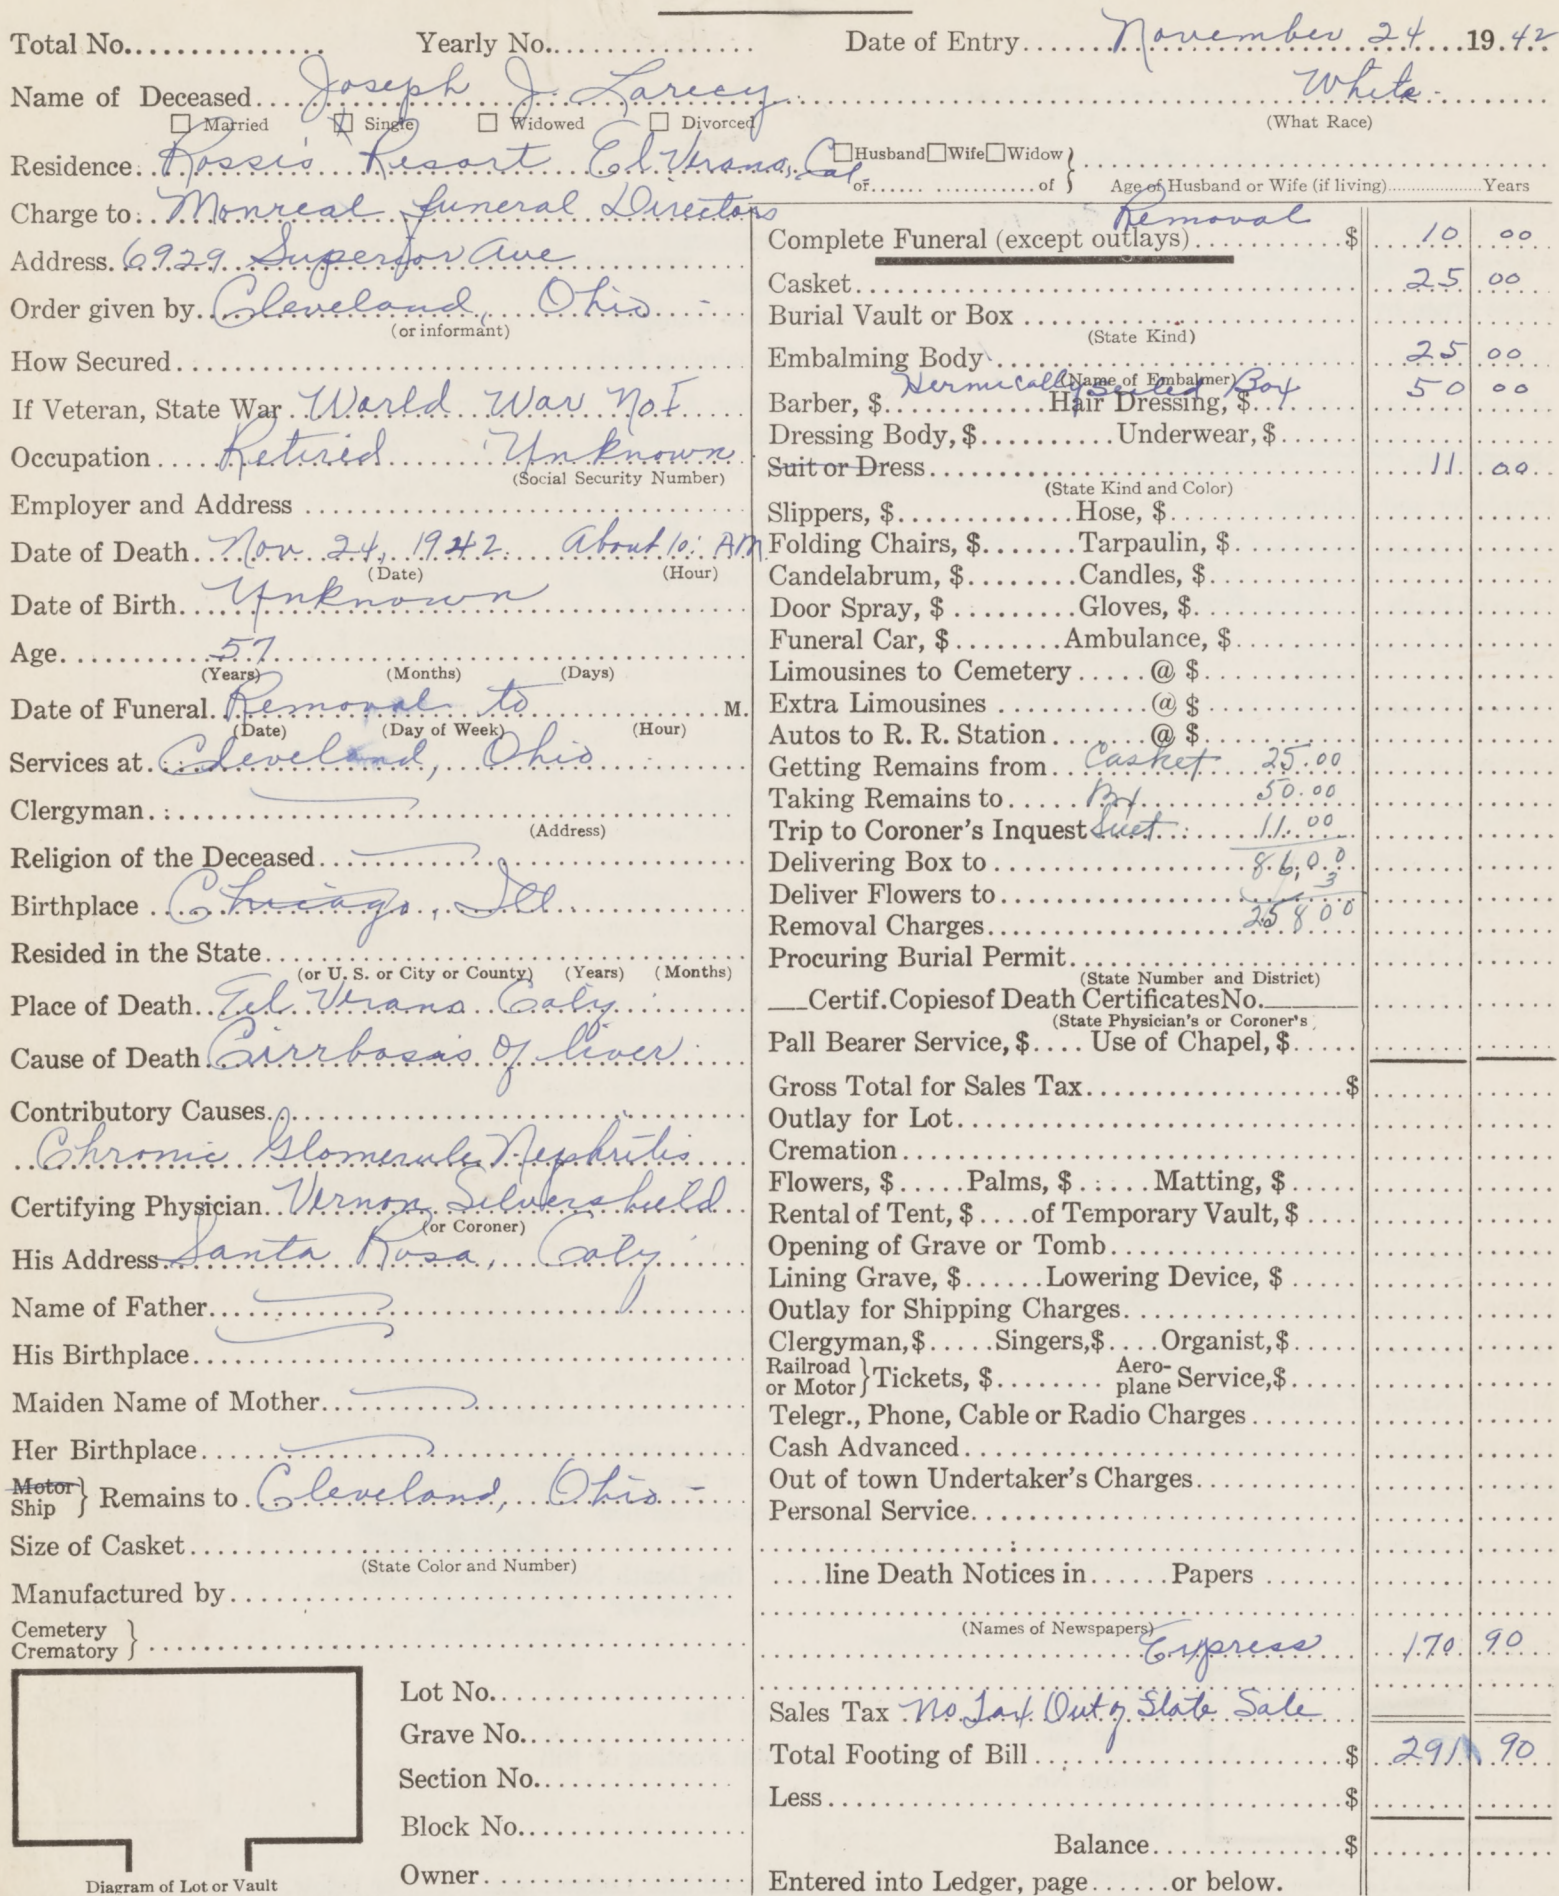 Total No. Yearly No. Date of Entry November 24 1942
Name of Deceased Joseph J. Larecy White
☐ Married ☒ Single ☐ Widowed ☐ Divorced (What Race)
Residence Rossi's Resort El Verano, Cal ☐ Husband ☐ Wife ☐ Widow
or of Age of Husband or Wife (if living) Years
Charge to: Monreal funeral Directors
Address 6929 Superior Ave
Order given by Cleveland, Ohio -
(or informant)
How Secured
If Veteran, State War World War No. I
Occupation Retired Unknown
(Social Security Number)
Employer and Address
Date of Death Nov 24, 1942. About 10: AM
(Date) (Hour)
Date of Birth Unknown
Age 57
(Years) (Months) (Days)
Date of Funeral Removal to M.
(Date) (Day of Week) (Hour)
Services at Cleveland, Ohio
Clergyman
(Address)
Religion of the Deceased
Birthplace Chicago, Ill.
Resided in the State
(or U. S. or City or County) (Years) (Months)
Place of Death El Verano Calif
Cause of Death Cirrhosis of liver
Contributory Causes
Chronic Glomerulo Nephritis
Certifying Physician Vernon Silvershield
(or Coroner)
His Address Santa Rosa, Calif
Name of Father
His Birthplace
Maiden Name of Mother
Her Birthplace
Motor Ship } Remains to Cleveland, Ohio -
Size of Casket
(State Color and Number)
Manufactured by
Cemetery
Crematory }
Lot No.
Grave No.
Section No.
Block No.
Owner
Diagram of Lot or Vault
Removal
Complete Funeral (except outlays) $ 10 00
Casket 25 00
Burial Vault or Box
(State Kind)
Embalming Body 25 00
(Name of Embalmer)
Hermically Seiled Box
Barber, $ Hair Dressing, $ 50 00
Dressing Body, $ Underwear, $
Suit or Dress 11 00
(State Kind and Color)
Slippers, $ Hose, $
Folding Chairs, $ Tarpaulin, $
Candelabrum, $ Candles, $
Door Spray, $ Gloves, $
Funeral Car, $ Ambulance, $
Limousines to Cemetery @ $
Extra Limousines @ $
Autos to R. R. Station @ $
Getting Remains from Casket 25.00
Taking Remains to Box 50.00
Trip to Coroner's Inquest Suet 11.00
Delivering Box to 86,00
Deliver Flowers to 3
Removal Charges 258 00
Procuring Burial Permit
(State Number and District)
Certif. Copies of Death Certificates No.
(State Physician's or Coroner's
Pall Bearer Service, $ Use of Chapel, $
Gross Total for Sales Tax $
Outlay for Lot
Cremation
Flowers, $ Palms, $ Matting, $
Rental of Tent, $ of Temporary Vault, $
Opening of Grave or Tomb
Lining Grave, $ Lowering Device, $
Outlay for Shipping Charges
Clergyman, $ Singers, $ Organist, $
Railroad or Motor } Tickets, $ Aero-plane Service, $
Telegr., Phone, Cable or Radio Charges
Cash Advanced
Out of town Undertaker's Charges
Personal Service
line Death Notices in Papers
(Names of Newspapers)
Express 170 90
Sales Tax No Tax Out of State Sale
Total Footing of Bill $ 291 90
Less $
Balance $
Entered into Ledger, page or below.